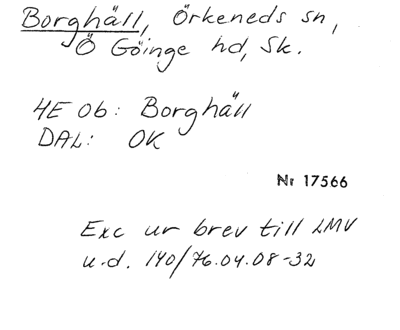 Borghäll, Örkeneds sn,
Ö Göinge hd, Sk.
4E 0b: Borghäll
DAL: OK
Nr 17566
Exc ur brev till LMV
u.d. 140/76.04.08-32